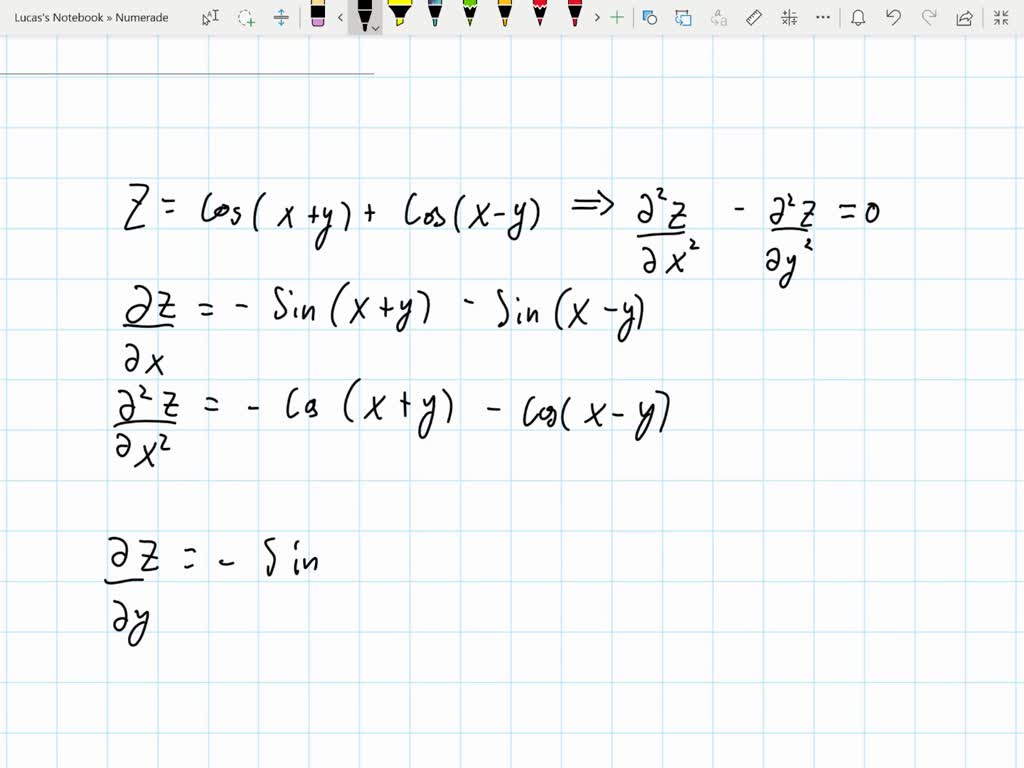 Lucas's Notebook » Numerade
Z = Cos(x+y) + Cos(x-y) ⇒ ∂²Z/∂x² - ∂²Z/∂y² = 0
∂Z/∂x = - Sin(x+y) - Sin(x-y)
∂²Z/∂x² = - Cos(x+y) - Cos(x-y)
∂Z/∂y = - Sin